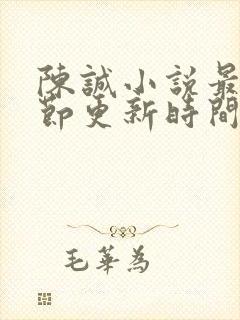 陳誠小説最
節更新時間
毛華為